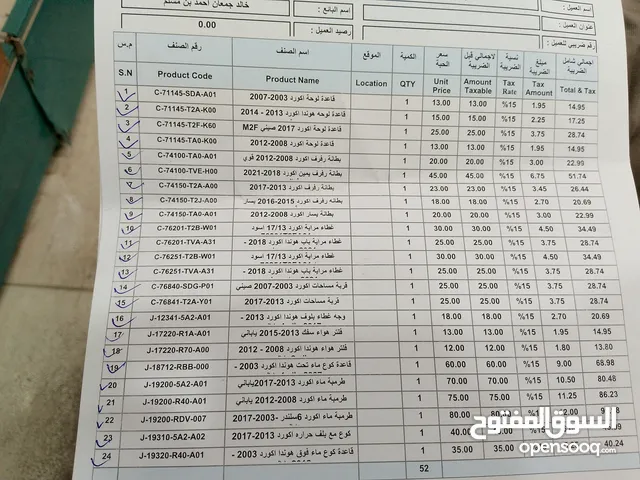 اسم البائع : خالد جمعان احمد بن مسلم
رصيد العميل : 0.00
اسم العميل :
عنوان العميل :
رقم ضريبي للعميل :
م.س رقم الصنف اسم الصنف الموقع الكمية سعر الحبة لاجمالي قبل الضريبة نسبة الضريبة مبلغ الضريبة اجمالي شامل الضريبة
S.N Product Code Product Name Location QTY Unit Price Amount Taxable Tax Rate Tax Amount Total & Tax
1 C-71145-SDA-A01 قاعدة لوحة اكورد 2003-2007 1 13.00 13.00 %15 1.95 14.95
2 C-71145-T2A-K00 قاعدة لوحه هوندا اكورد 2013 - 2014 1 15.00 15.00 %15 2.25 17.25
3 C-71145-T2F-K60 قاعدة لوحة اكورد 2017 صيني M2F 1 25.00 25.00 %15 3.75 28.74
4 C-71145-TA0-K00 قاعدة لوحة اكورد 2008-2012 1 13.00 13.00 %15 1.95 14.95
5 C-74100-TA0-A01 بطانة رفرف اكورد 2008-2012 قوي 1 20.00 20.00 %15 3.00 22.99
6 C-74100-TVE-H00 بطانة رفرف يمين اكورد 2018-2021 1 45.00 45.00 %15 6.75 51.74
7 C-74150-T2A-A00 بطانه رفرف اكورد 2013-2017 1 23.00 23.00 %15 3.45 26.44
8 C-74150-T2J-A00 بطانه رفرف اكورد 2015-2016 يسار 1 18.00 18.00 %15 2.70 20.69
9 C-74150-TA0-A01 بطانة يسار اكورد 2008-2012 1 20.00 20.00 %15 3.00 22.99
10 C-76201-T2B-W01 غطاء مراية اكورد 17/13 اسود 1 30.00 30.00 %15 4.50 34.49
11 C-76201-TVA-A31 غطاء مراية باب هوندا اكورد 2018 - 1 25.00 25.00 %15 3.75 28.74
12 C-76251-T2B-W01 غطاء مراية اكورد 17/13 اسود 1 30.00 30.00 %15 4.50 34.49
13 C-76251-TVA-A31 غطاء مراية باب هوندا اكورد 2018 - 1 25.00 25.00 %15 3.75 28.74
14 C-76840-SDG-P01 قربة مساحات اكورد 2003-2007 صيني 1 25.00 25.00 %15 3.75 28.74
15 C-76841-T2A-Y01 قربة مساحات اكورد 2013-2017 1 25.00 25.00 %15 3.75 28.74
16 J-12341-5A2-A01 وجه غطاء بلوف هوندا اكورد 2013 - 1 18.00 18.00 %15 2.70 20.69
17 J-17220-R1A-A01 فلتر هواء سفك 2013-2015 ياباني 1 13.00 13.00 %15 1.95 14.95
18 J-17220-R70-A00 فلتر هواء هوندا اكورد 2008 - 2012 1 12.00 12.00 %15 1.80 13.80
19 J-18712-RBB-000 قاعدة كوع ماء تحت هوندا اكورد 2003 - 1 60.00 60.00 %15 9.00 68.98
20 J-19200-5A2-A01 طرمبة ماء اكورد 2013-2017ياباني 1 70.00 70.00 %15 10.50 80.48
21 J-19200-R40-A01 طرمبة ماء اكورد 2008-2012 ياباني 1 75.00 75.00 %15 11.25 86.23
22 J-19200-RDV-007 طرمبة ماء اكورد 6سلندر -2003-2017 1 80.00 80.00
23 J-19310-5A2-A02 كوع مع بلف حراره اكورد 2013-2017 1 40.00
24 J-19320-R40-A01 قاعدة كوع ماء فوق هوندا اكورد 2003 - 1 35.00 35.00 %15 40.24
52
السوق المفتوح
opensooq.com